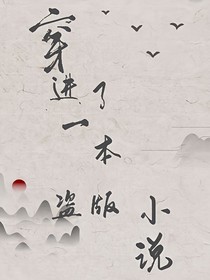 穿进了
一本
盗版
小说